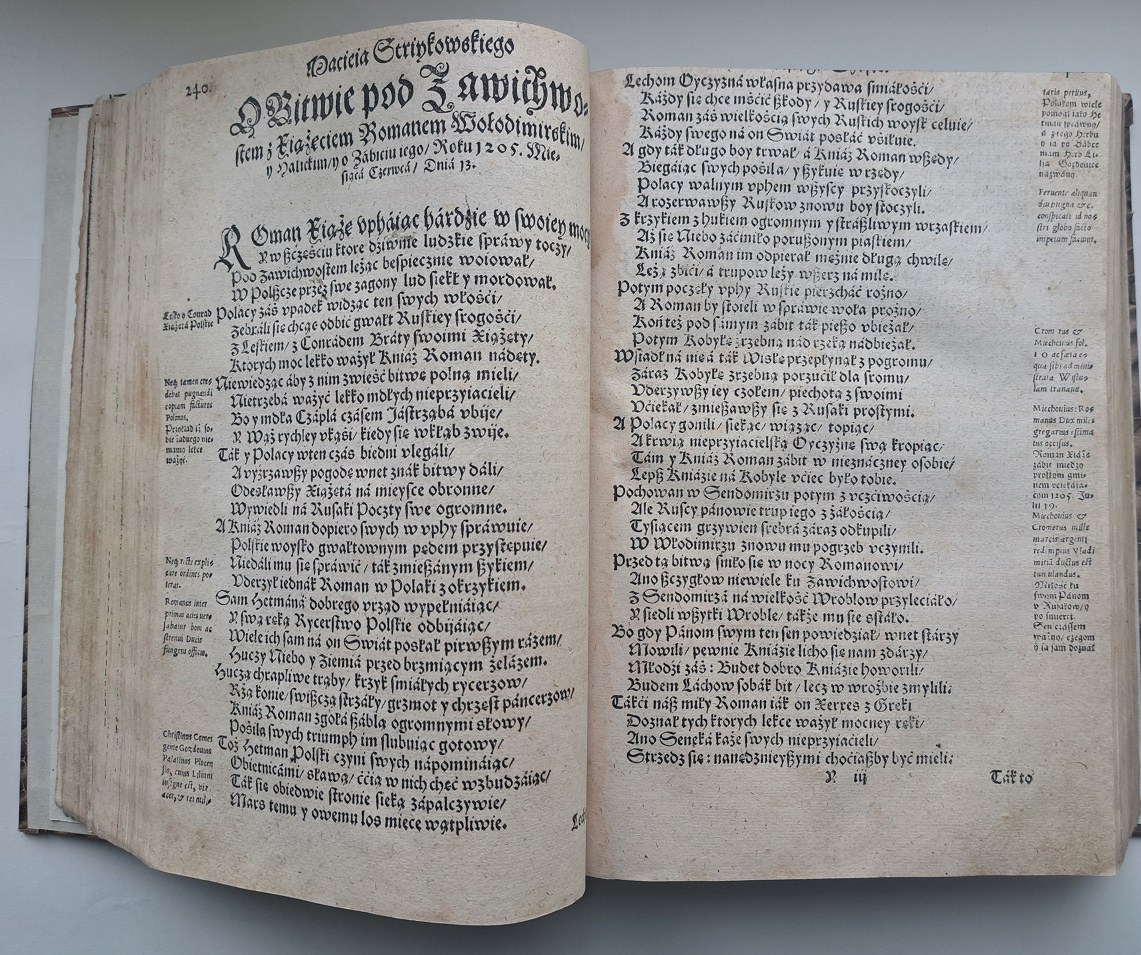 240.
Macieia Stryikowskiego
O Bitwie pod Zawichwo-
stem z Xiążęciem Romanem Wołodimirskim/
y Halickim/ y o Zabiciu iego/ Roku 1205. Mie-
siącá Czerwcá/ Dniá 13.
ROman Xiąże vpháiąc hárdzie w swoiey mocy
Y w sczęściu ktore dziwnie ludzkie spráwy toczy/
Pod Zawichwostem leżąc bespiecznie woiował/
W Polszcze przez swe zagony lud siekł y mordował.
Polacy zaś vpadek widząc ten swych włości/
Zebráli sie chcąc odbić gwałt Ruskiey srogości/
Z Leszkiem/ z Conrádem Bráty swoimi Xiążęty/
Ktorych moc lekko ważył Kniáź Roman nádęty.
Niewiedząc áby z nim zwieść bitwę polną mieli/
Nietrzebá ważyć lekko mdłych nieprzyiacieli/
Bo y mdła Czáplá czásem Jástrząbá vbije/
Y Wąż rychley vkąśi/ kiedy sie w kłąb zwije.
Ták y Polacy w ten czás biedni vlegáli/
A vyźrzawszy pogodę wnet znák bitwy dáli/
Odesławszy Xiążętá ná mieysce obronne/
Wywiedli ná Rusaki Poczty swe ogromne.
A Kniáź Roman dopiero swych w vphy spráwuie/
Polskie woysko gwałtownym pędem przystępuie/
Niedáli mu sie spráwić/ ták zmieszánym szykiem/
Vderzył iednák Roman w Polaki z okrzykiem.
Sam Hetmáná dobrego vrząd wypełniáiąc/
Y swą ręką Rycerstwo Polskie odbijáiąc/
Wiele ich sam ná on Swiát posłał pirwszym rázem/
Huczy Niebo y Ziemiá przed brzmiącym żelázem.
Huczą chrapliwe trąby/ krzyk śmiáłych rycerzow/
Rżą konie/ swiszczą strzáły/ grzmot y chrzęst páncerzow/
Kniáź Roman zgołá száblą ogromnymi słowy/
Pośila swych triumph im slubuiąc gotowy/
Toż Hetman Polski czyni swych nápomináiąc/
Obietnicámi/ sławą/ ććią w nich chęć wzbudzáiąc/
Ták sie obiedwie stronie sieką zápalczywie/
Mars temu y owemu los miece wątpliwie.
Xiążętá Polskie
Neq; tamen cre-
debat pugnandi
copiam facturos
Polonos.
Neq; recte expli-
care ordines po-
terat.
Romanus inter
primas acies ver-
sabatur boni ac
strenui Ducis
fungens officio.
Christinus Comes
Palatinus Plocen
Lechom Oyczyzná własna przydawa śmiáłości/
Káżdy sie chce mścić szkody/ y Ruskiey srogości/
Roman záś wielkością swych Ruskich woysk celuie/
Káżdy swego ná on Swiát posłáć vśiłuie.
A gdy ták długo boy trwał/ á Kniáź Roman wszędy/
Biegáiąc swych pośila/ y szykuie w rzędy/
Polacy walnym vphem wszyscy przyskoczyli/
A rozerwawszy Ruskow znowu boy stoczyli.
Z krzykiem z hukiem ogromnym y strászliwym wrzaskiem/
Aż sie Niebo záćmiło poruszonym piaskiem/
Kniáź Roman im odpierał mężnie długą chwilę/
Leżą zbići/ á trupow leży wszerz ná milę.
Potym poczęły vphy Ruskie pierzcháć rożno/
A Roman by stoieli w spráwie woła prożno/
Koń też pod sámym zábit ták pieszo vbieżał/
Potym Kobyłę źrzebną nád rzeką nádbieżał.
Wsiadł ná nię á ták Wisłę przepłynął z pogromu/
Záraz Kobyłę źrzebną porzucił dla sromu/
Vderzywszy iey czołem/ piechotą z swoimi
Vciekał/ zmieszawszy sie z Rusaki prostymi.
A Polacy gonili/ siekąc/ wiążąc/ topiąc/
A krwią nieprzyiacielską Oyczyznę swą kropiąc/
Tám y Kniáź Roman zábit w nieznáczney osobie/
Lepsz Kniáźie ná Kobyle vćiec było tobie.
Pochowan w Sendomirzu potym z vczćiwośćią/
Ale Ruscy pánowie trup iego z żáłością/
Tysiącem grzywien srebrá záraz odkupili/
W Włodimirzu znowu mu pogrzeb vczynili.
Przed tą bitwą śniło sie w nocy Romanowi/
Ano szczygłow niewiele ku Zawichwostowi/
Z Sendomirzá ná wielkość Wroblow przyleciáło/
Y ziedli wszytki Wroble/ tákże mu sie sstáło.
Bo gdy Pánom swym ten sen powiedział/ wnet stárzy
Mowili/ pewnie Kniáźie licho sie nam zdárzy/
Młodźi záś: Budet dobro Kniáźie howorili/
Budem Láchow sobák bit/ lecz w wroźbie zmylili:
Tákći nász miły Roman iák on Xerxes z Greki
Doznał tych ktorych lekce ważył mocney ręki/
Ano Seneká każe swych nieprzyiacieli/
Strzedz sie: nanędznieyszymi chociaszby być mieli:
Y iij
Ták to
Romá-
manus Dux miles
gregarius
Roman Xiąże
zábit między
prostym gmi-
nem
1205. Ju-
lij 19.
Miechouius &
Cromerus mille
marcis argenti
redimptus Vladi
miriae ductus est
tumulandus.
swym Pánom
v Rusakow/ y
po śmierci.
Sen czássem
ważny, czegom
y ia sam doznał